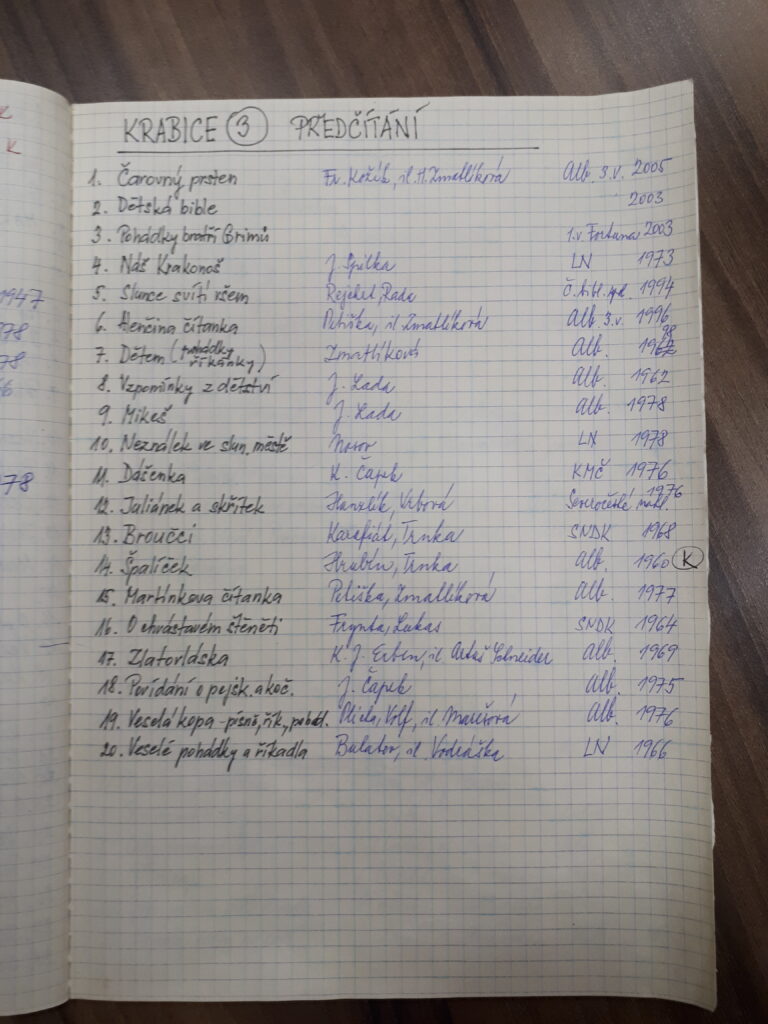 KRABICE 3 PŘEDČÍTÁNÍ
1. Čarovný prsten Fr. Kožík, il. H. Zmatlíková Alb. 3.v. 2005
2. Dětská bible 2003
3. Pohádky bratří Grimů 1.v. Fortuna 2003
4. Náš Krakonoš J. Spilka LN 1973
5. Slunce svítí všem Rejchrt, Rada Č. bibl. spol. 1994
6. Henčina čítanka Petiška, il. Zmatlíková Alb. 3.v. 1996
7. Dětem (pohádky říkánky) Zmatlíková Alb.
8. Vzpomínky z dětství J. Lada Alb. 1962
9. Mikeš J. Lada Alb. 1978
10. Neználek ve slun. městě Nosov LN 1978
11. Dášenka K. Čapek KMČ 1976
12. Juliánek a skřítek Hanzlík, Vrbová Severočeské nakl. 1976
13. Broučci Karafiát, Trnka SNDK 1968
14. Špalíček Hrubín, Trnka Alb. 1960 K
15. Martínkova čítanka Petiška, Zmatlíková Alb. 1977
16. O chvástavém štěněti Frynta, Lukas SNDK 1964
17. Zlatovláska K. J. Erben, il Artuš Scheider Alb. 1969
18. Povídání o pejsk. a koč. J. Čapek Alb. 1975
19. Veselá kopa - písně, řík., pohád. Plicka, Volf, il Marešová Alb. 1976
20. Veselé pohádky a říkadla Bulatov, il. Vodrážka LN 1966
1947
978
978
78